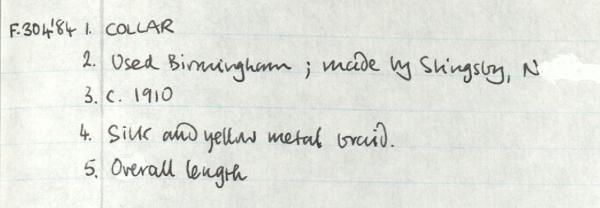 F.304'84 1. COLLAR
2. Used Birmingham ; made by Slingsby, N
3. c. 1910
4. Silk and yellow metal braid.
5. Overall length